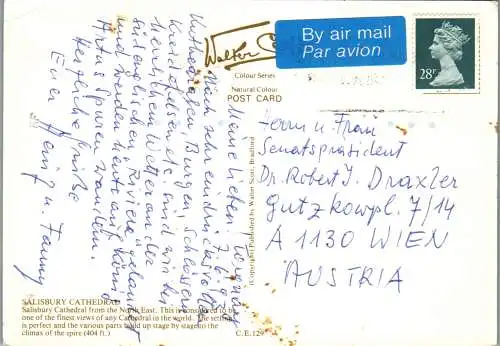 By air mail
Par avion
28P
Colour Series
Natural Colour
POST CARD
Herrn u. Frau
Senatspräsident
Dr. Robert J. Draxler
Gutzkowpl. 7/14
A 1130 WIEN
AUSTRIA
Meine Lieben!
Nach sehr eindrucksvollen
Kathedralen, Burgen, Schlössern
sind wir bei
herrlichem Wetter an der
südenglischen Riviera gelandet
und werden heute auf König
Artus Spuren wandeln.
Herzliche Grüße
Euer Heinz u. Fanny
(Copyright) Published by Walter Scott, Bradford
SALISBURY CATHEDRAL
Salisbury Cathedral from the North East. This is considered to be
one of the finest views of any Cathedral in the world. The setting
is perfect and the various parts build up stage by stage to the
climax of the spire (404 ft.)
C.E.129